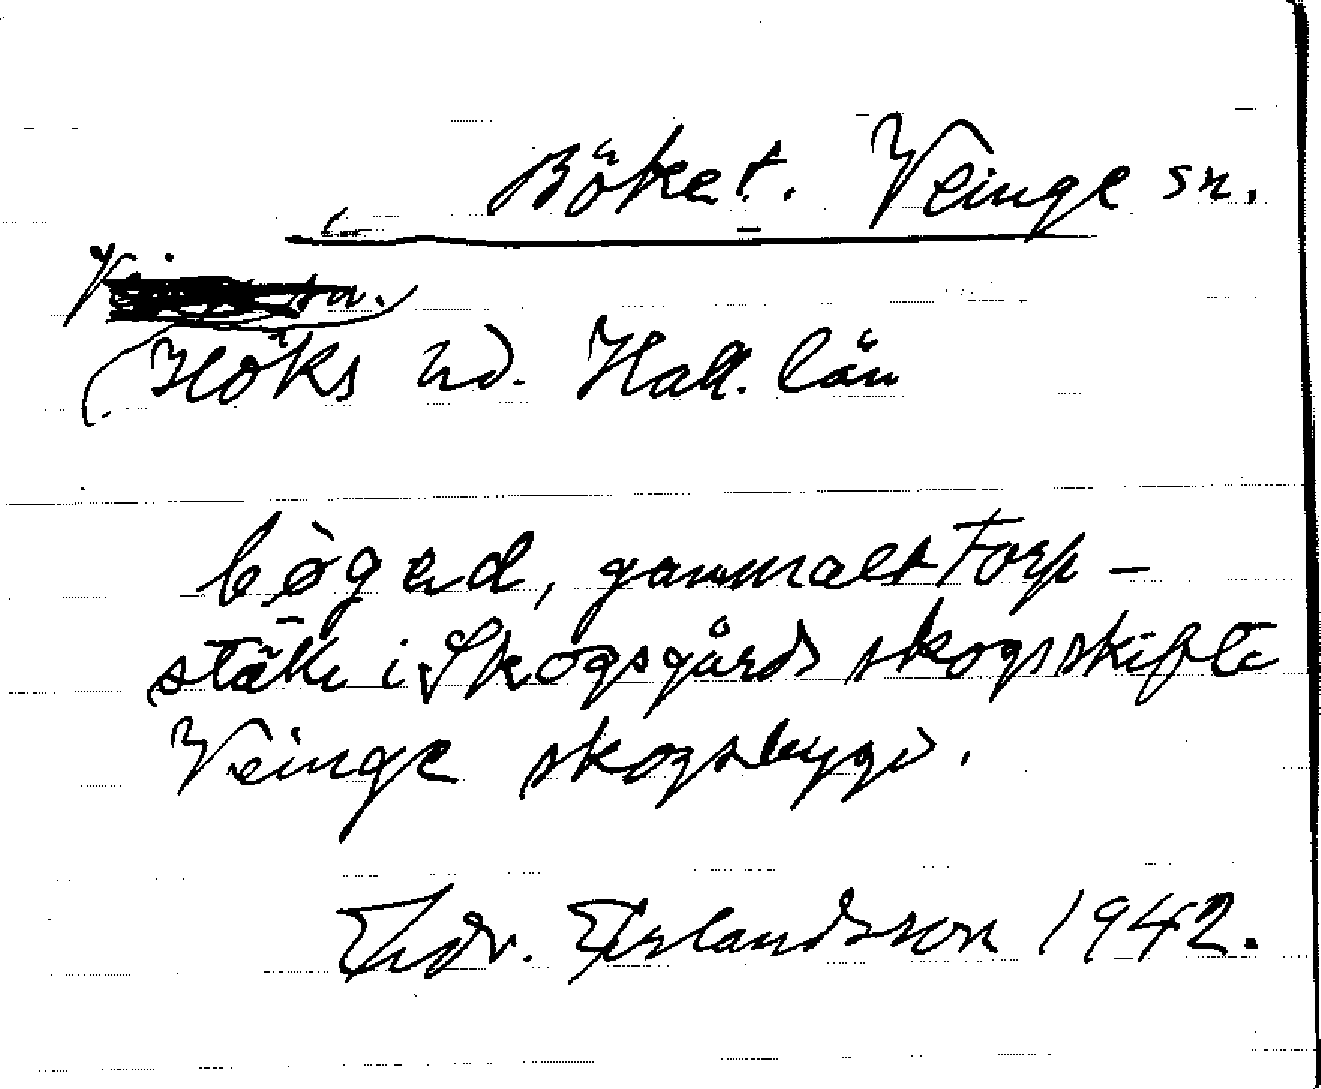 Böket. Veinge sn.
Höks hd. Hall. län
bøgəd, gammalt torp-
ställe i Skogsgårds skogsskifte
Veinge skogsbygd.
Edv. Erlandsson 1942.